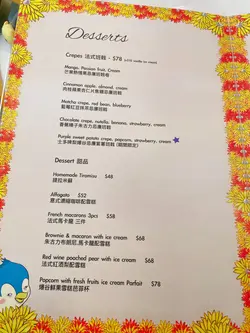 Desserts
Crepes 法式班戟 - $78 (with vanilla ice cream)
Mango, Passion fruit, Cream
芒果熱情果忌廉班戟
Cinnamon apple, almond, cream
肉桂蘋果杏仁片焦糖忌廉班戟
Matcha crepe, red bean, blueberry
藍莓紅豆抹茶忌廉班戟
Chocolate crepe, nutella, banana, strawberry, cream
香蕉榛子朱古力忌廉班戟
Purple sweet potato crepe, popcorn, strawberry, cream
士多啤梨爆谷忌廉紫薯班戟 (期間限定)
Dessert 甜品
Homemade Tiramisu $48
提拉米蘇
Affogato $52
意式濃縮咖啡配雪糕
French macarons 3pcs $58
法式馬卡龍 三件
Brownie & macaron with ice cream $68
朱古力布朗尼,馬卡龍配雪糕
Red wine poached pear with ice cream $68
法式紅酒梨配雪糕
Popcorn with fresh fruits ice cream Parfait $78
爆谷鮮果雪糕芭菲杯